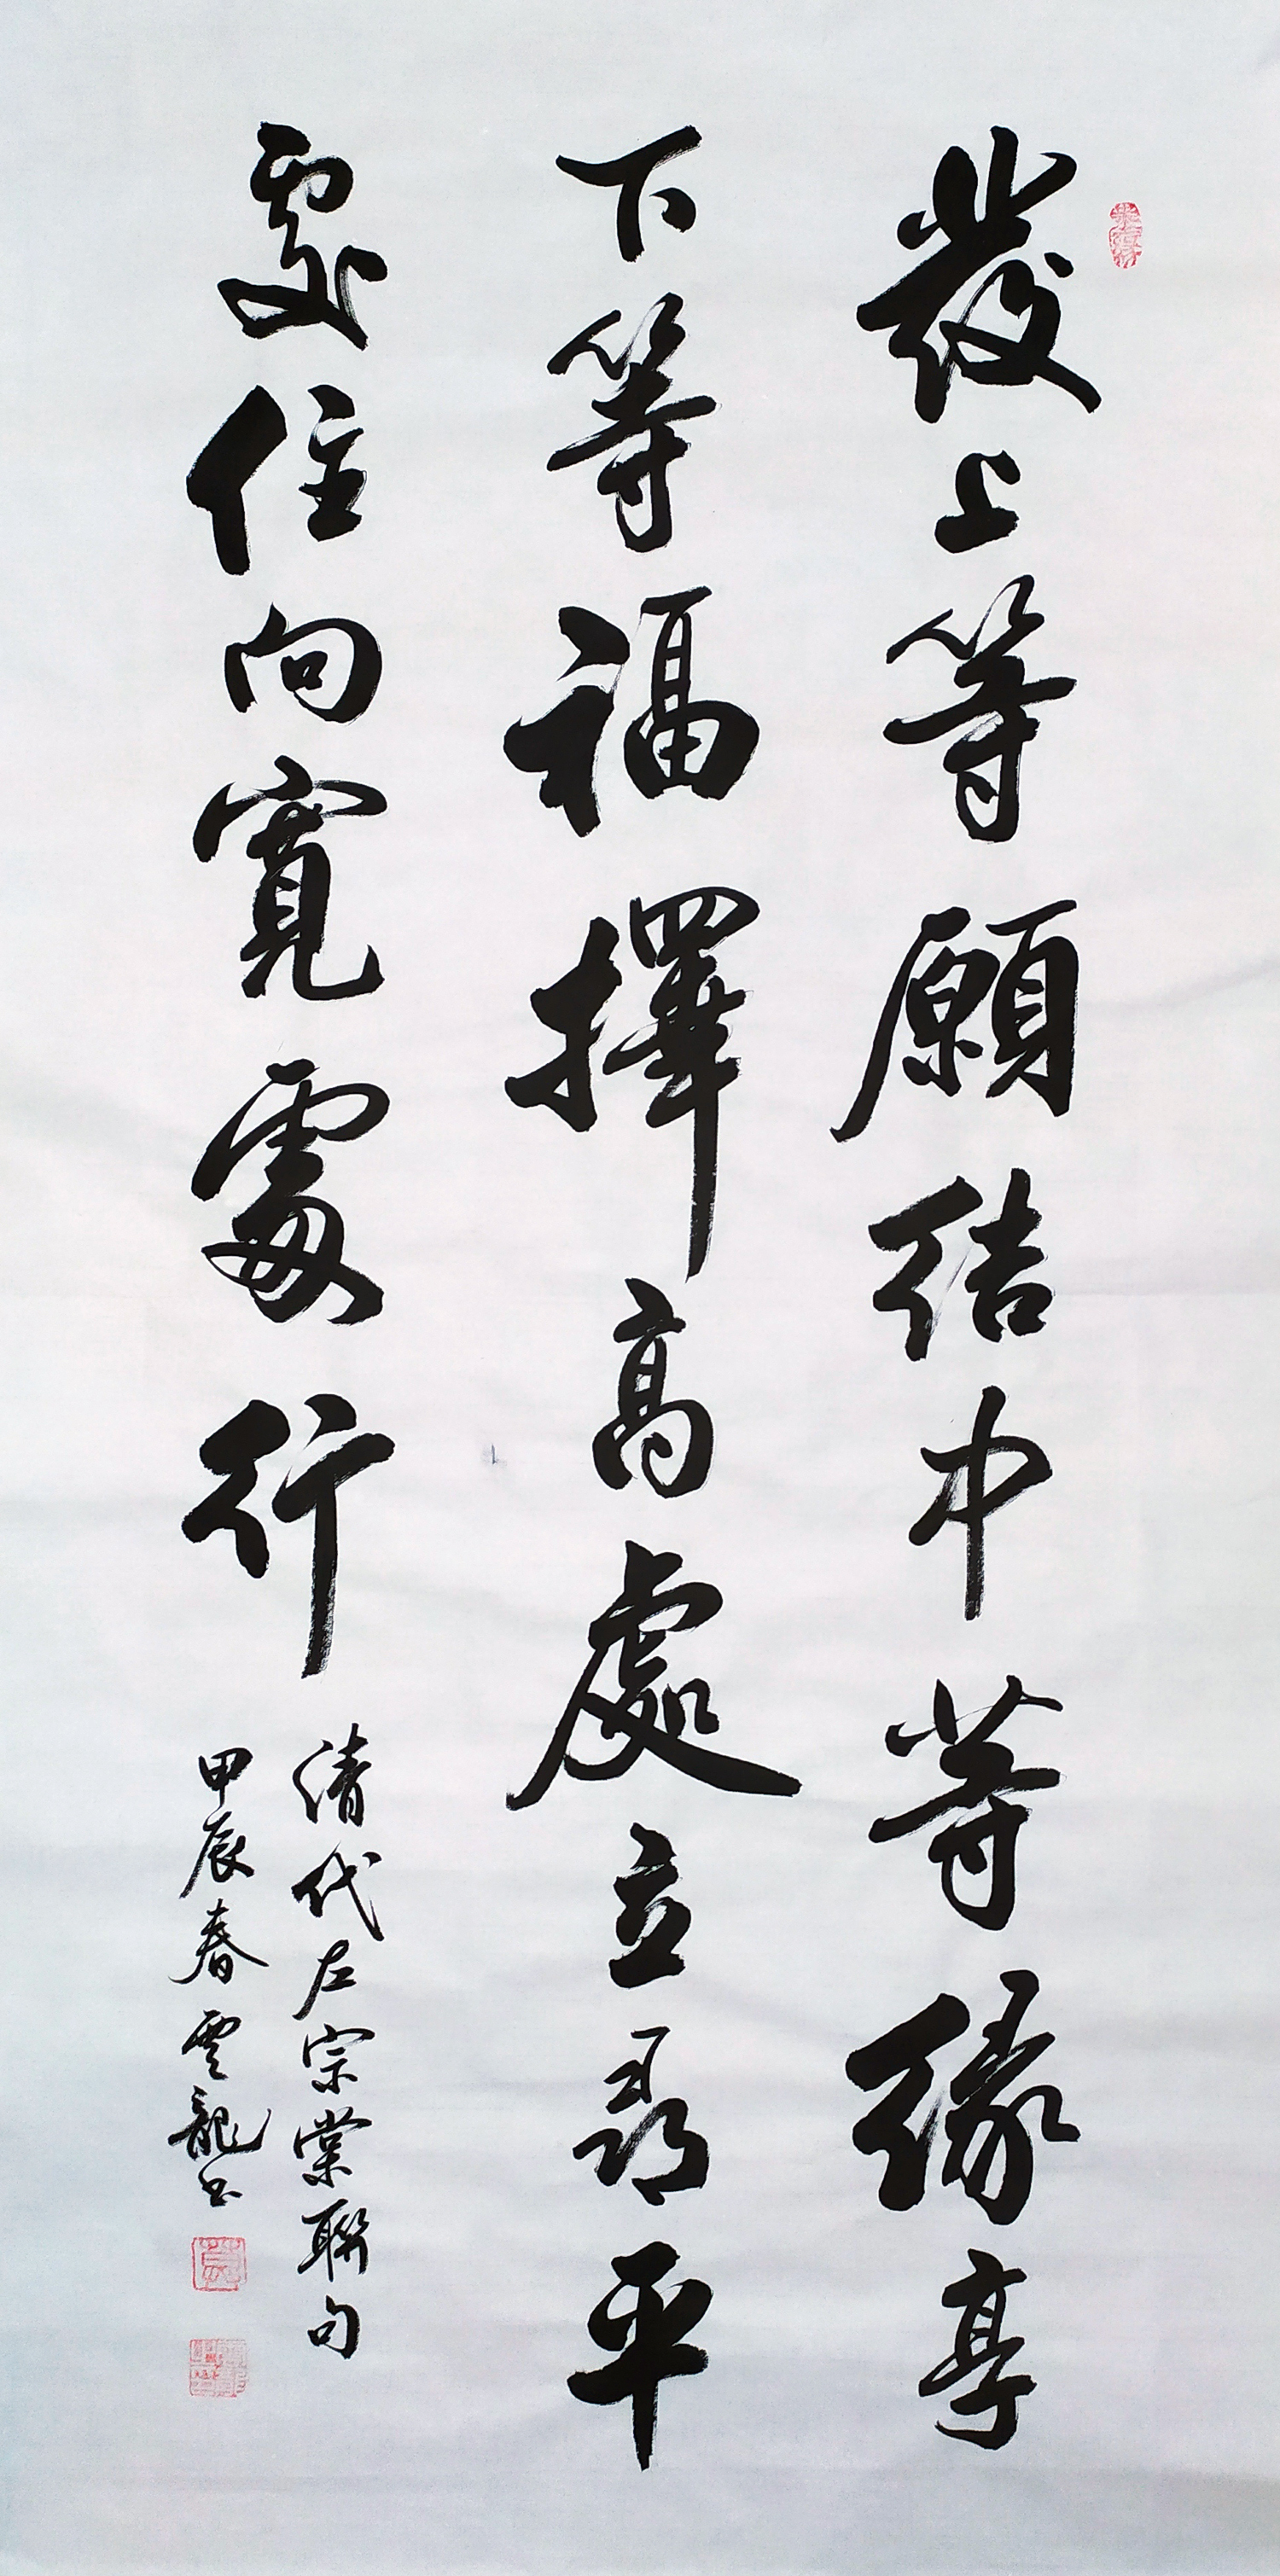 發上等願結中等緣享
下等福擇高處立尋平
處住向寬處行
清代左宗棠聯句
甲辰春雲龍书